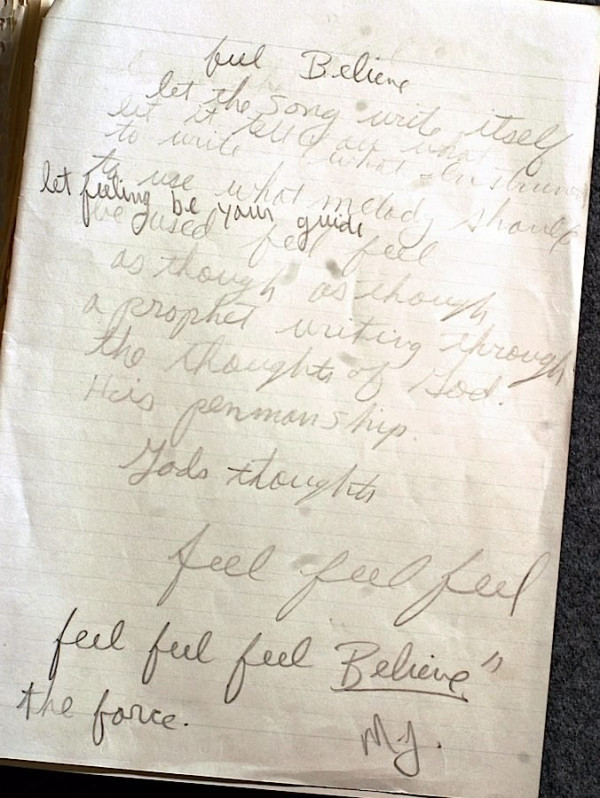 feel Believe
let the song write itself
let it tell you what
to write what instrument
to use what melody should
let feeling be your guide
be used feel feel
as though as though
a prophet writing through
the thoughts of God.
His penmanship.
Gods thoughts
feel feel feel
feel feel feel Believe"
the force.
MJ.